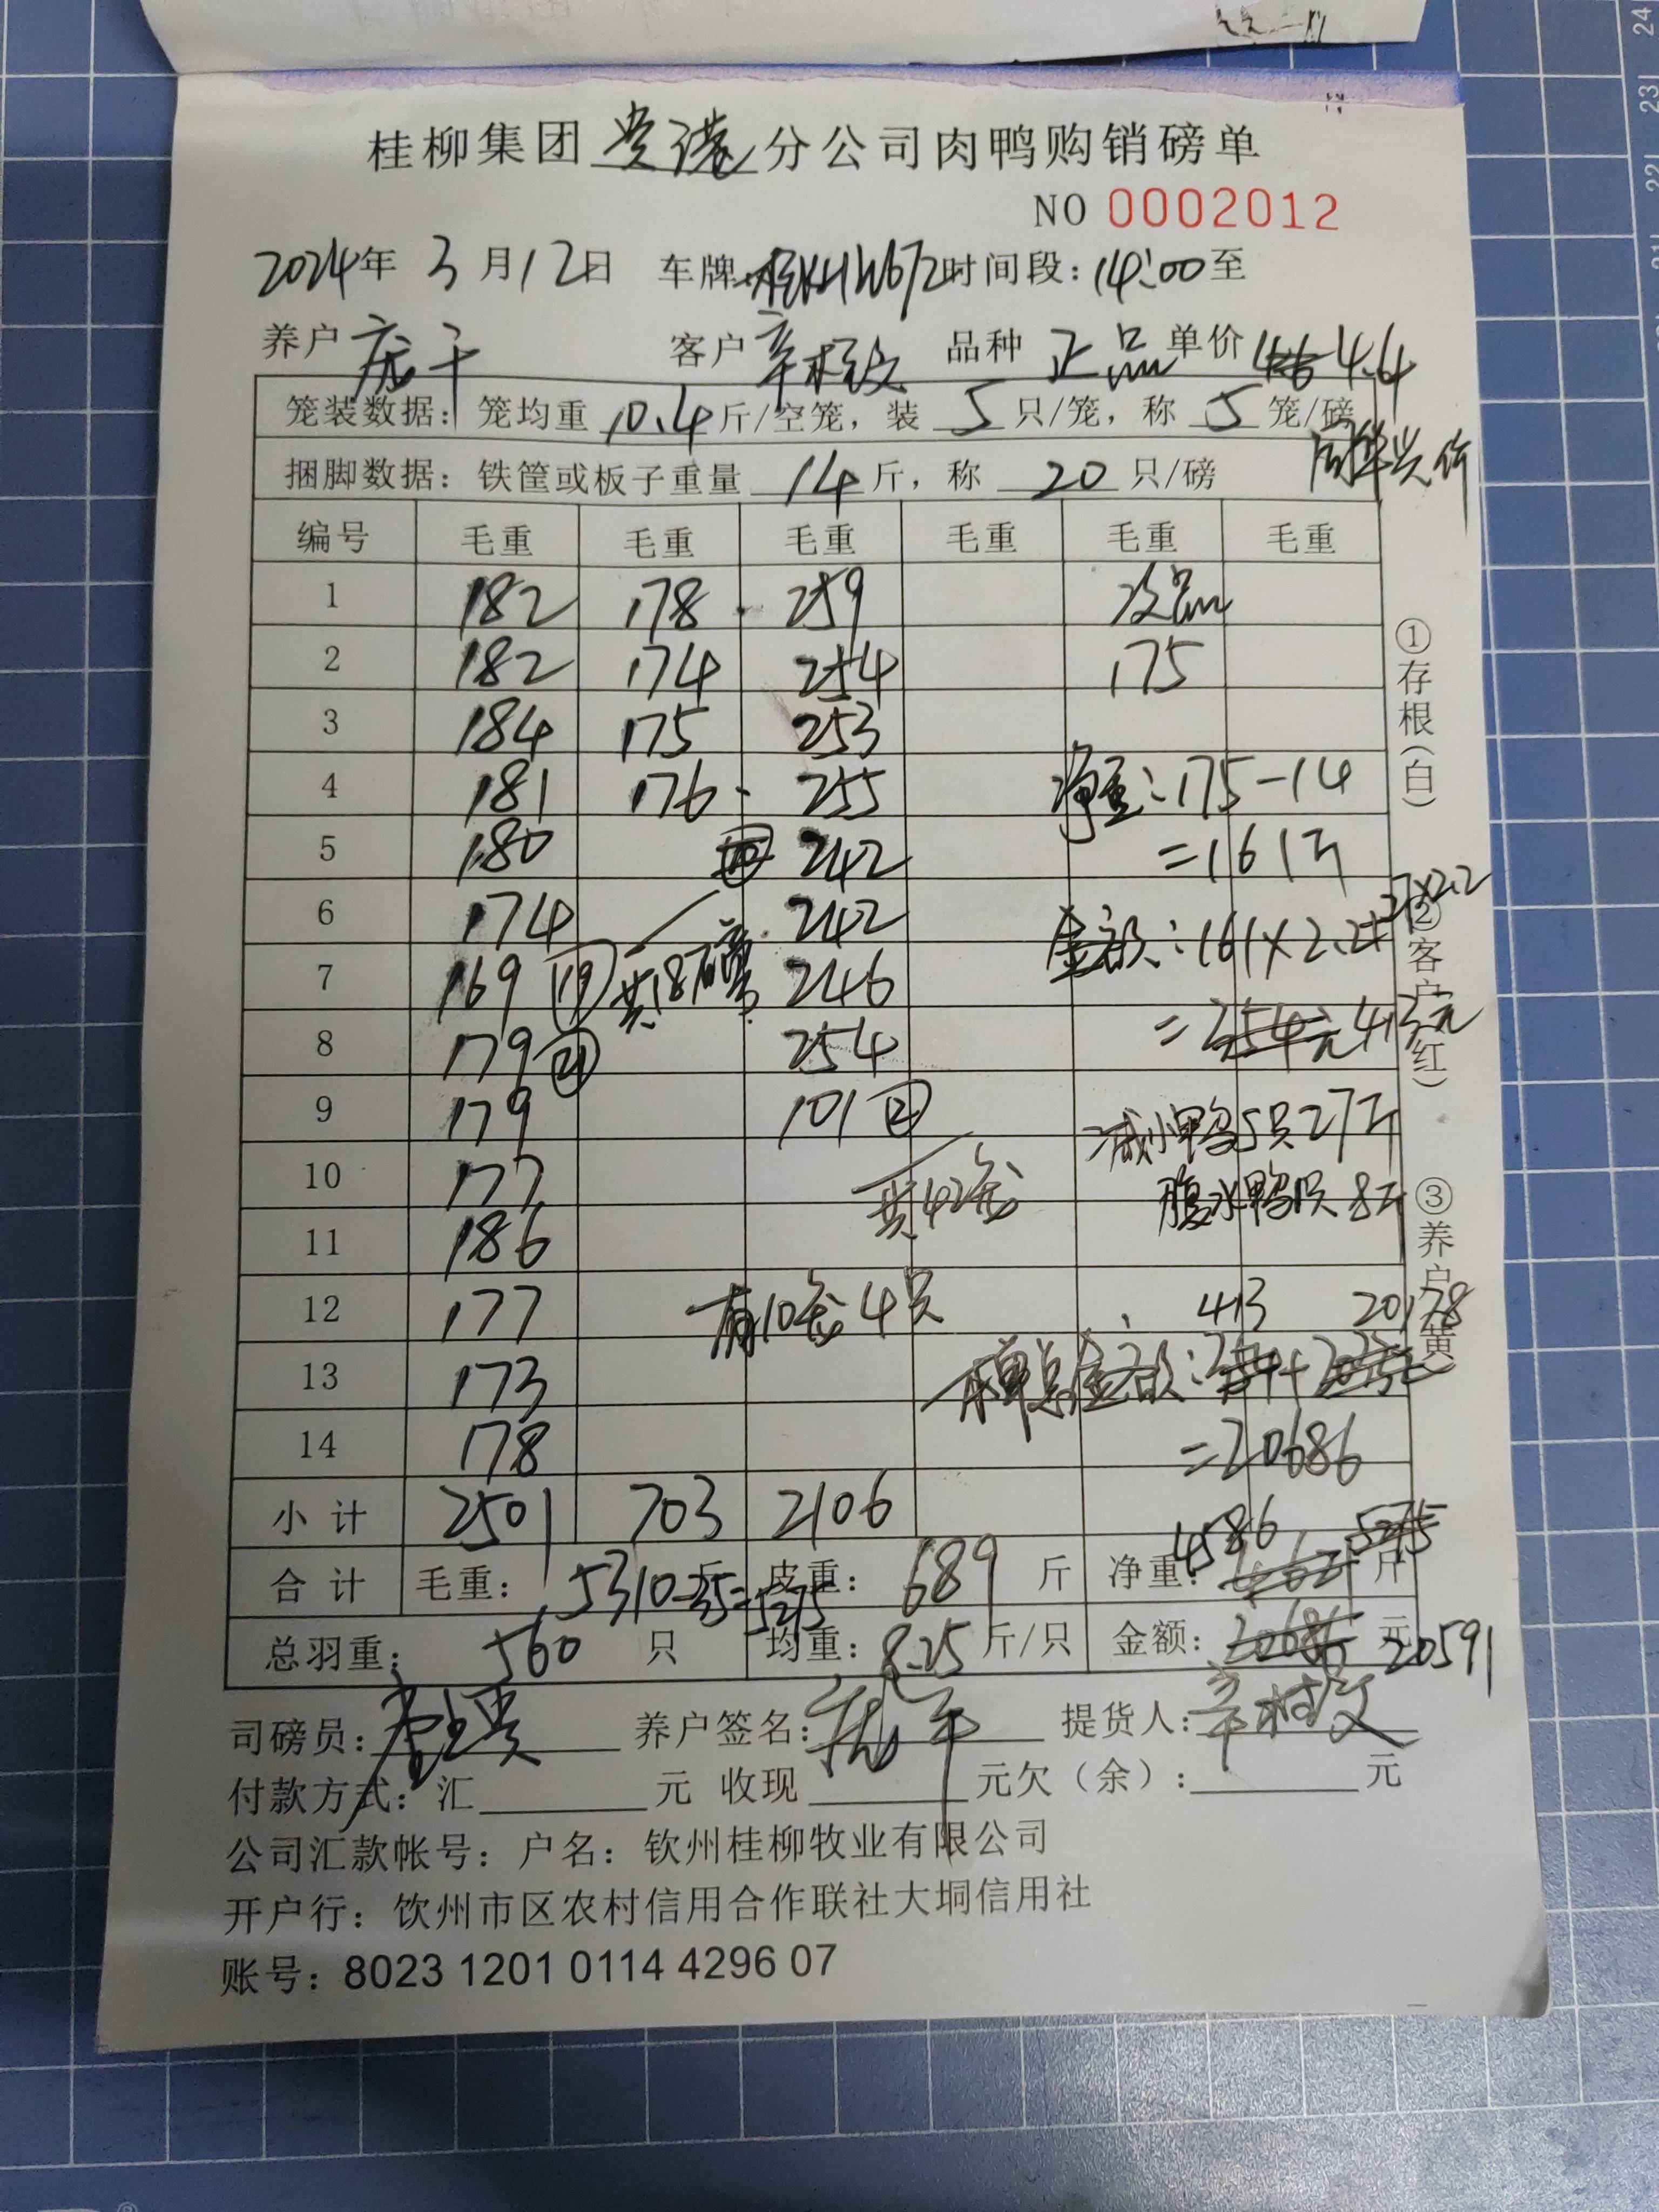 桂柳集团贵港分公司肉鸭购销磅单
NO 0002012
2024年 3月12日 车牌: 时间段: 14:00至
养户 庞干 客户 辛桂文 品种 正品 单价 4.6 4.4
笼装数据: 笼均重 10.4 斤/空笼, 装 5 只/笼, 称 5 笼/磅
捆脚数据: 铁筐或板子重量 14 斤, 称 20 只/磅
编号 毛重 毛重 毛重 毛重 毛重 毛重
1 182 178 259 次品
2 182 174 254 175
3 184 175 253
4 181 176 255 净重:175-14
5 180 242 =161斤
6 174 242 金额:161×2.2+27×2.2
7 169 ⑲ 共18磅 246 =254元 413元
8 179 ㉑ 254
9 179 101 ② 减小鸭5只27斤
10 177 共42笼 腹水鸭1只8斤
11 186
12 177 有10笼4只 413 20178
13 173 本单总金额:
14 178 =20686
小计 2501 703 2106
合计 毛重: 5310-35=5275 斤 皮重: 689 斤 净重: 4586 斤 5275
总羽重: 560 只 均重: 8.25 斤/只 金额: 20686 元 20591
司磅员: 养户签名: 提货人: 辛桂文
付款方式: 汇 元 收现 元欠(余): 元
公司汇款帐号: 户名: 钦州桂柳牧业有限公司
开户行: 饮州市区农村信用合作联社大垌信用社
账号: 8023 1201 0114 4296 07
①存根(白)
②客户(红)
③养户(黄)